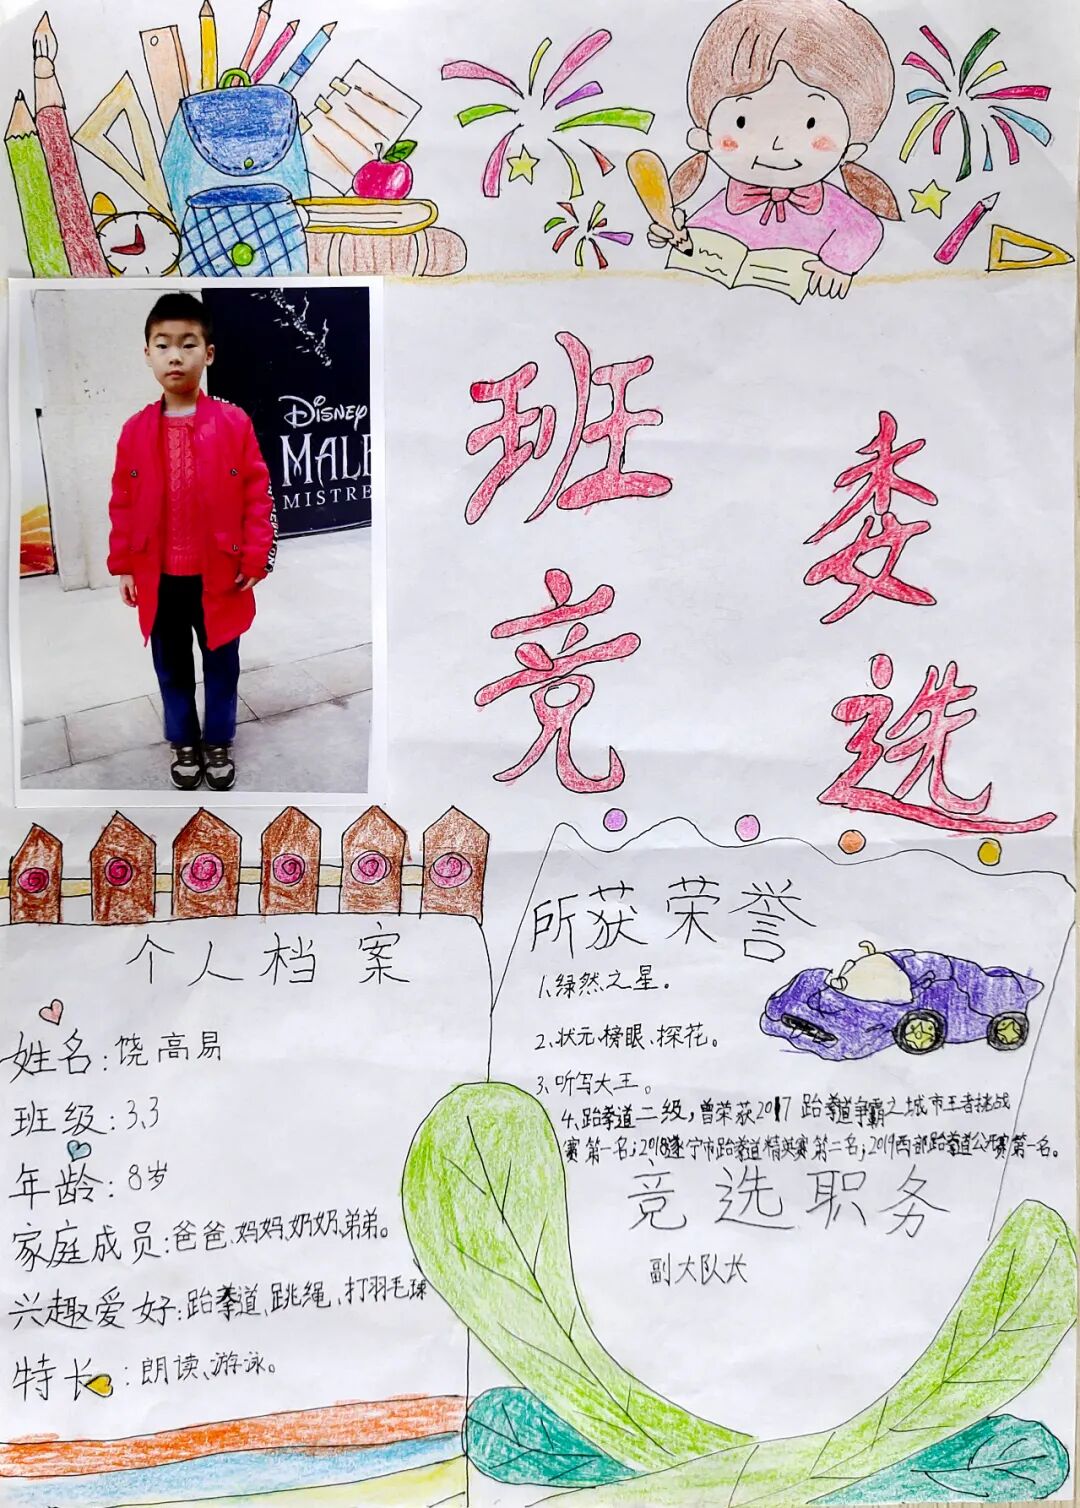 DISNEY
MALE
MISTRE
班委
竞选
个人档案
姓名：饶高易
班级：3.3
年龄：8岁
家庭成员：爸爸、妈妈、奶奶、弟弟。
兴趣爱好：跆拳道、跳绳、打羽毛球
特长：朗读、游泳。
所获荣誉
1、绿然之星。
2、状元、榜眼、探花。
3、听写大王。
4、跆拳道二级，曾荣获2017跆拳道争霸之城市王者挑战
赛第一名；2018遂宁市跆拳道精英赛第二名；2019西部跆拳道公开赛第一名。
竞选职务
副大队长